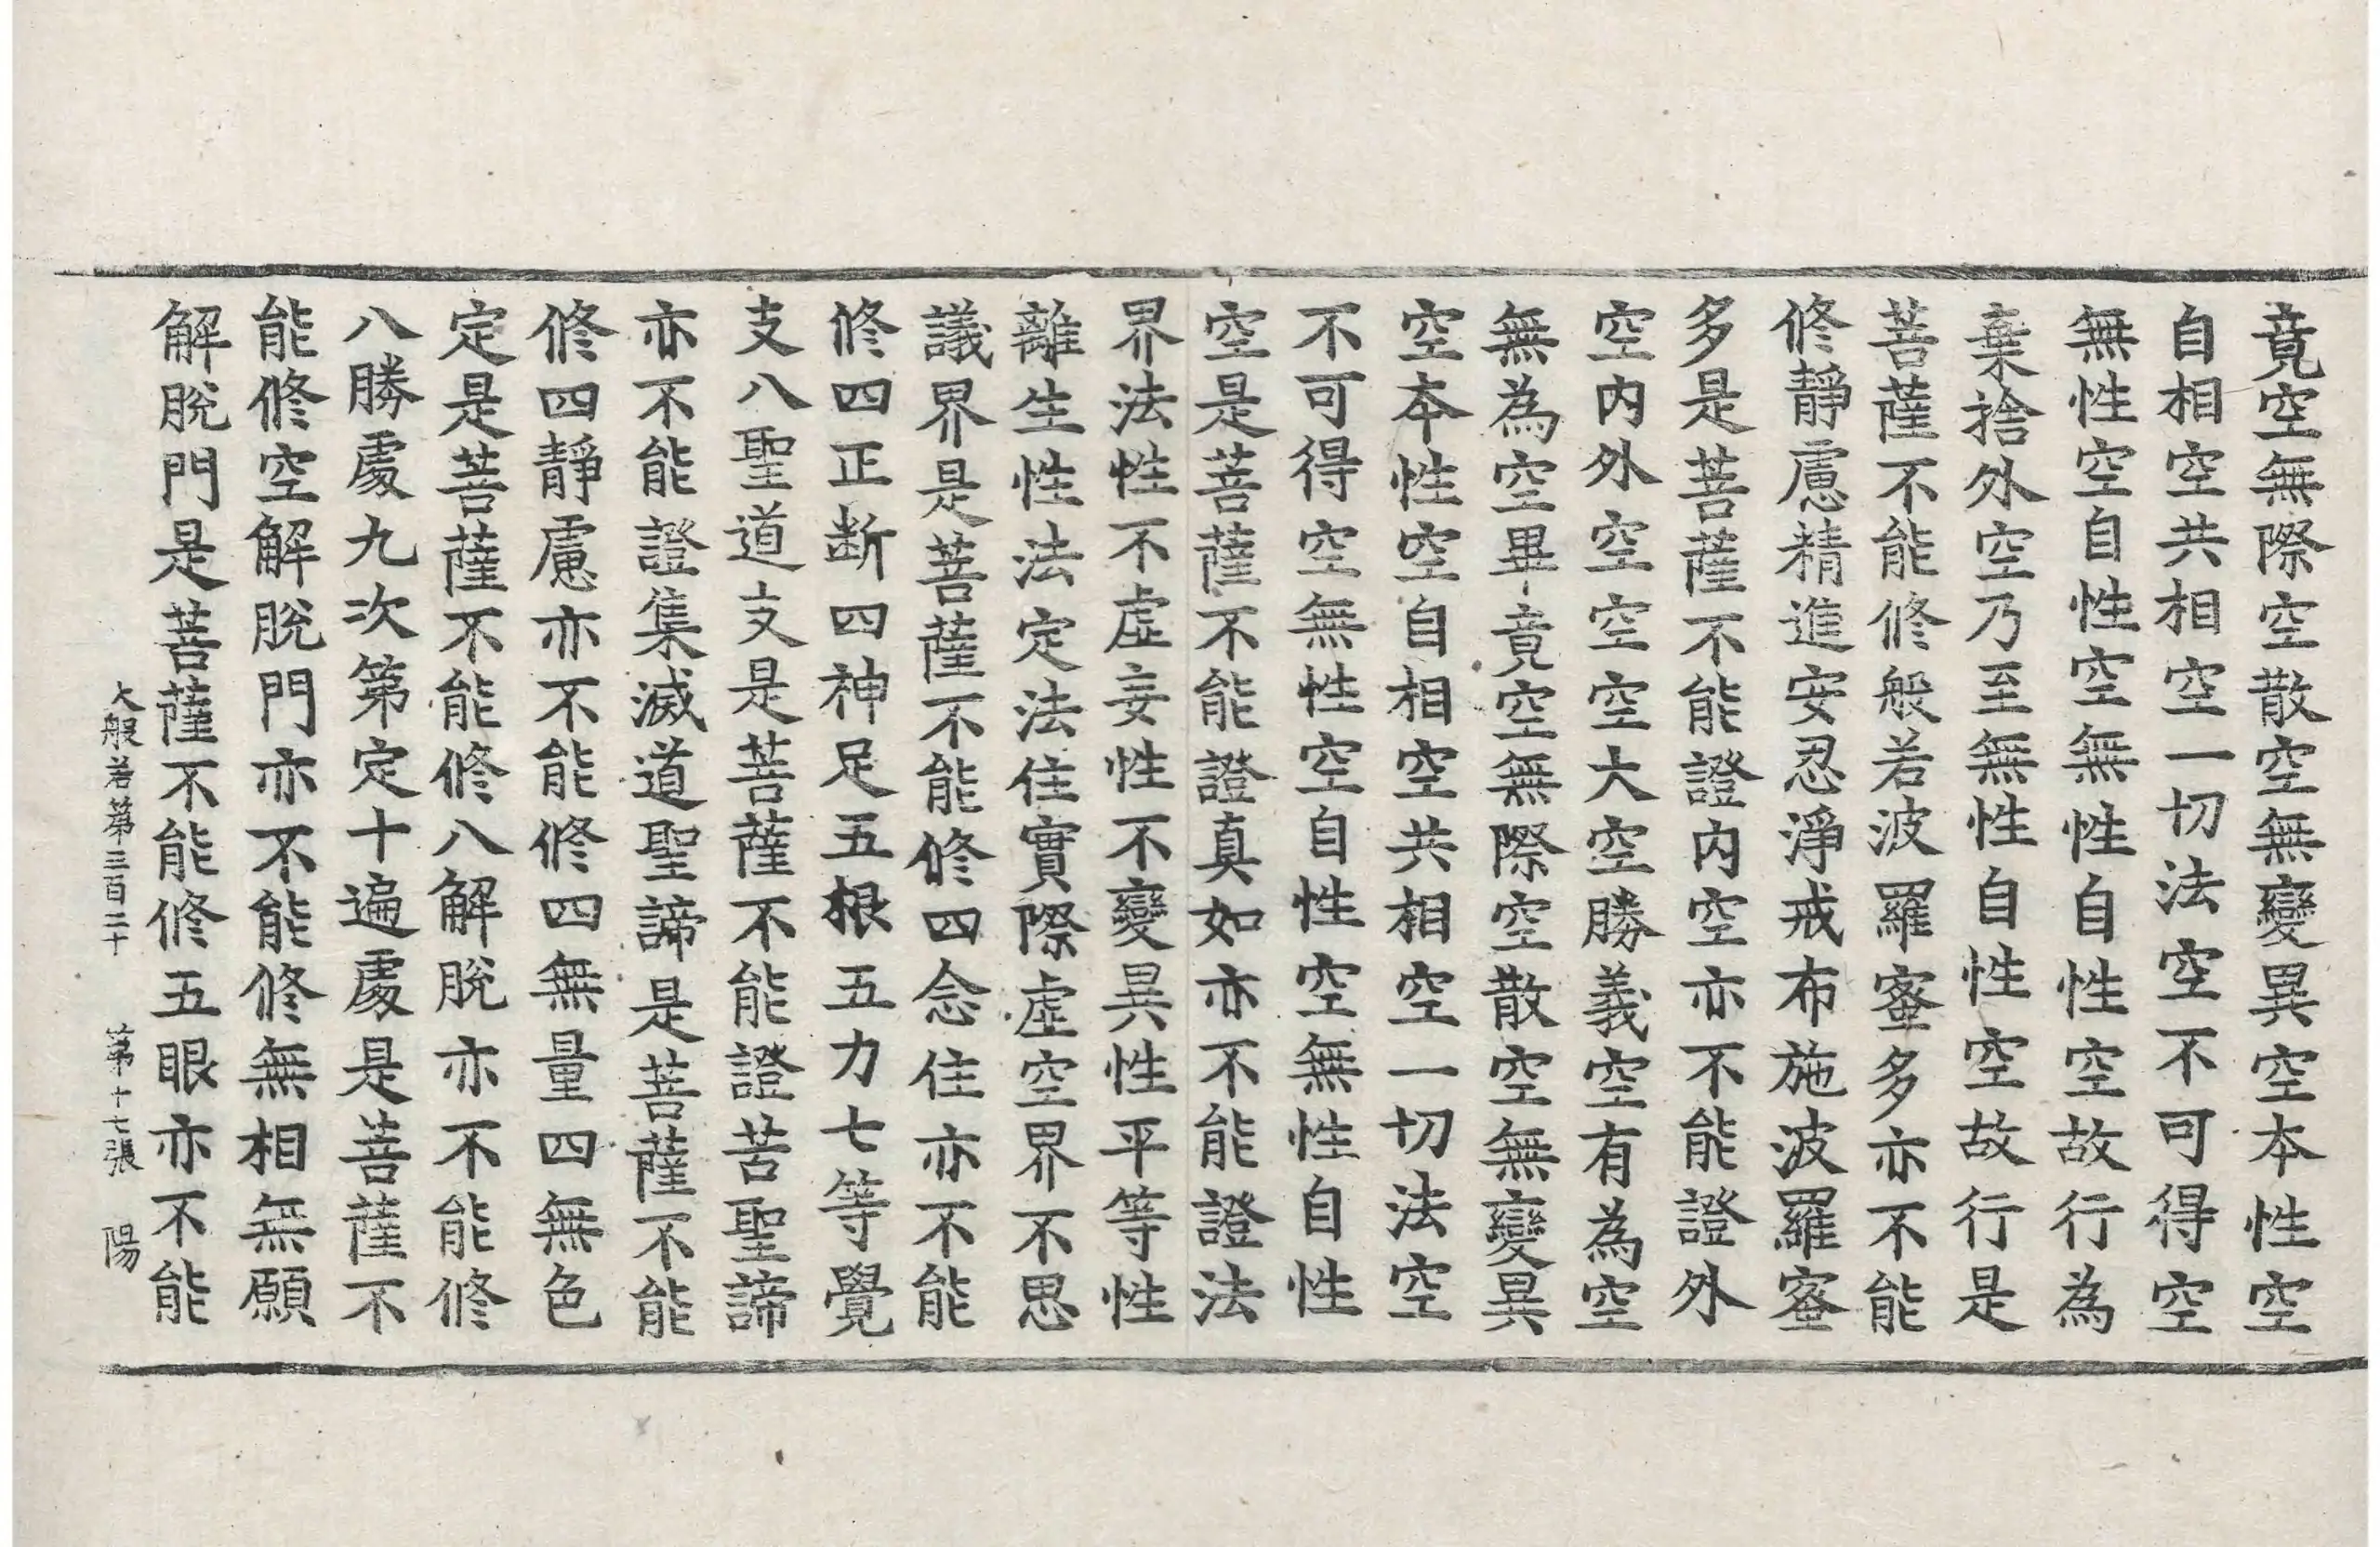 竟空無際空散空無變異空本性空
自相空共相空一切法空不可得空
無性空自性空無性自性空故行為
棄捨外空乃至無性自性空故行是
菩薩不能修般若波羅蜜多亦不能
修靜慮精進安忍淨戒布施波羅蜜
多是菩薩不能證內空亦不能證外
空內外空空空大空勝義空有為空
無為空畢竟空無際空散空無變異
空本性空自相空共相空一切法空
不可得空無性空自性空無性自性
空是菩薩不能證真如亦不能證法
界法性不虛妄性不變異性平等性
離生性法定法住實際虛空界不思
議界是菩薩不能修四念住亦不能
修四正断四神足五根五力七等覺
支八聖道支是菩薩不能證苦聖諦
亦不能證集滅道聖諦是菩薩不能
修四靜慮亦不能修四無量四無色
定是菩薩不能修八解脫亦不能修
八勝處九次第定十遍處是菩薩不
能修空解脫門亦不能修無相無願
解脫門是菩薩不能修五眼亦不能
大般若第三百二十 第十七張 陽